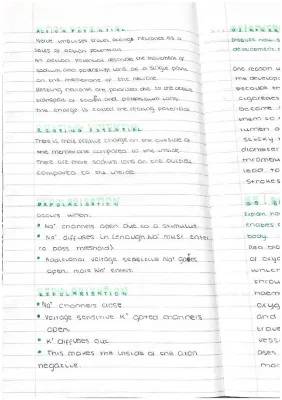 ACTION POTENTIAL
Nerve impulses travel along neurones as a
series of action potentials
An action potential describes the movement of
sodium and potassium ions at a single point
on the membrane of the neurone.
Resting neurones are polarised due to the active
transport of sodium and potassium ions
this charge is called the resting potential
RESTING POTENTIAL
There is more positive charge on the outside of
the membrane compared to the inside.
There are more sodium ions on the outside
compared to the inside.
DEPOLARISATION
Occurs when:
• Na⁺ channels open due to a stimulus
• Na⁺ diffuses in (enough Na⁺ must enter
to pass threshold)
• Additional voltage sensitive Na⁺ gates
open, more Na⁺ enters.
REPOLARISATION
• Na⁺ channels close.
• Voltage sensitive K⁺ gated channels
open.
• K⁺ diffuses out
• This makes the inside of the axon
negative.
Discuss how
development
One reason
the develop
because th
cigarettes
become
them so
lumen
sticky
diameter
thrombu
lead to
strokes
Explain ho
enables
body
Red blo
of oxyg
which
throu
haem
oxyg
and
trave
vess